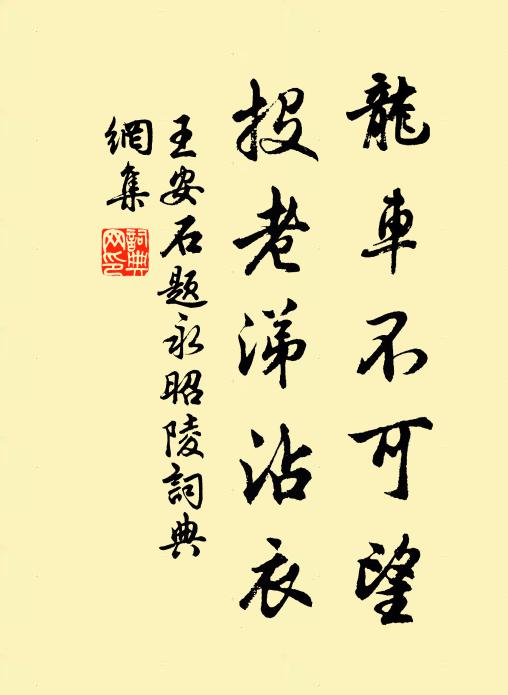 龍車不可望
投老涕沾衣
王安石題永昭陵詞典
網集
詞典網印